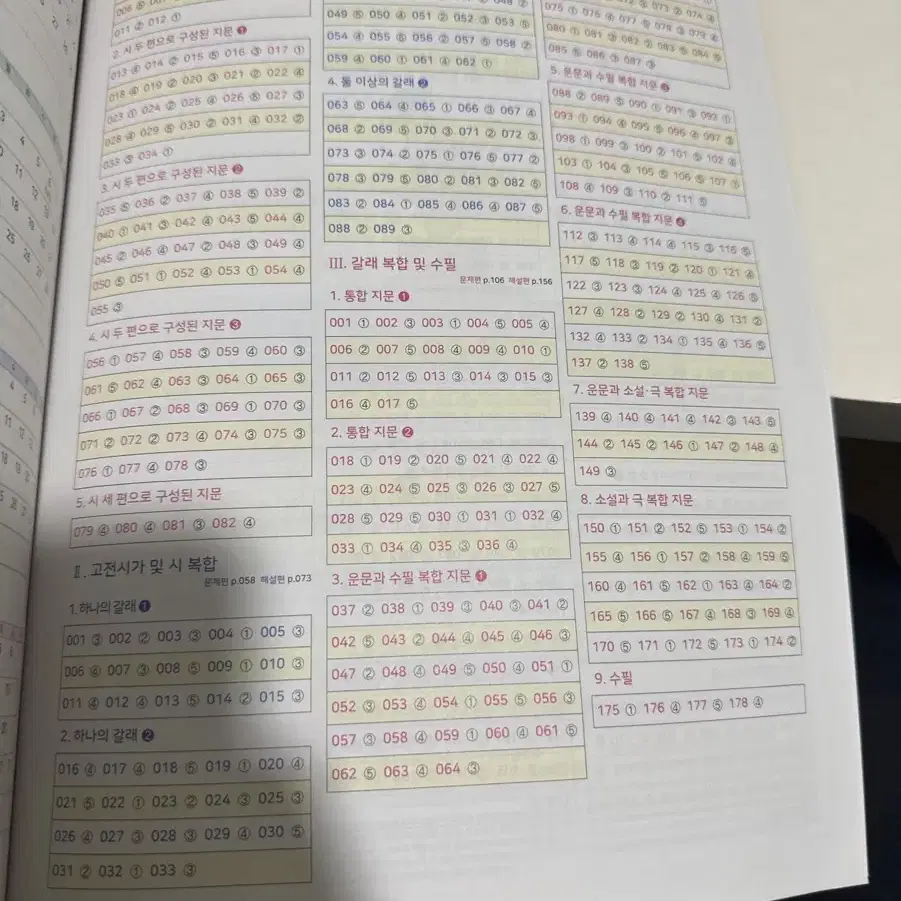 011 ② 012 ①
2. 시 두 편으로 구성된 지문 ❶
013 ④ 014 ② 015 ⑤ 016 ③ 017 ①
018 ④ 019 ② 020 ③ 021 ② 022 ④
023 ① 024 ② 025 ④ 026 ⑤ 027 ③
028 ④ 029 ⑤ 030 ② 031 ④ 032 ②
033 ③ 034 ①
3. 시 두 편으로 구성된 지문 ❷
035 ⑤ 036 ② 037 ④ 038 ⑤ 039 ②
040 ① 041 ③ 042 ④ 043 ⑤ 044 ④
045 ② 046 ④ 047 ② 048 ③ 049 ④
050 ⑤ 051 ① 052 ④ 053 ① 054 ④
055 ③
4. 시 두 편으로 구성된 지문 ❸
056 ① 057 ④ 058 ③ 059 ④ 060 ③
061 ⑤ 062 ④ 063 ③ 064 ① 065 ③
066 ① 067 ② 068 ③ 069 ① 070 ③
071 ② 072 ② 073 ④ 074 ③ 075 ③
076 ① 077 ④ 078 ③
5. 시 세 편으로 구성된 지문
079 ④ 080 ④ 081 ③ 082 ④
Ⅱ. 고전시가 및 시 복합
문제편 p.058 해설편 p.073
1. 하나의 갈래 ❶
001 ③ 002 ② 003 ③ 004 ① 005 ③
006 ④ 007 ③ 008 ⑤ 009 ① 010 ③
011 ④ 012 ④ 013 ⑤ 014 ② 015 ③
2. 하나의 갈래 ❷
016 ④ 017 ④ 018 ⑤ 019 ① 020 ④
021 ⑤ 022 ① 023 ② 024 ③ 025 ③
026 ④ 027 ③ 028 ③ 029 ④ 030 ⑤
031 ② 032 ① 033 ③
049 ⑤ 050 ④ 051 ② 052 ③ 053 ⑤
054 ④ 055 ⑤ 056 ② 057 ⑤ 058 ②
059 ④ 060 ① 061 ④ 062 ①
4. 둘 이상의 갈래 ❷
063 ⑤ 064 ④ 065 ① 066 ③ 067 ④
068 ② 069 ⑤ 070 ③ 071 ② 072 ③
073 ③ 074 ② 075 ① 076 ⑤ 077 ②
078 ③ 079 ⑤ 080 ② 081 ③ 082 ⑤
083 ② 084 ① 085 ④ 086 ④ 087 ⑤
088 ② 089 ③
Ⅲ. 갈래 복합 및 수필
문제편 p.106 해설편 p.156
1. 통합 지문 ❶
001 ① 002 ③ 003 ① 004 ⑤ 005 ④
006 ② 007 ⑤ 008 ④ 009 ④ 010 ①
011 ② 012 ⑤ 013 ③ 014 ③ 015 ③
016 ④ 017 ⑤
2. 통합 지문 ❷
018 ① 019 ② 020 ⑤ 021 ④ 022 ④
023 ④ 024 ⑤ 025 ③ 026 ③ 027 ⑤
028 ⑤ 029 ⑤ 030 ① 031 ① 032 ④
033 ① 034 ④ 035 ③ 036 ④
3. 운문과 수필 복합 지문 ❶
037 ② 038 ① 039 ③ 040 ③ 041 ②
042 ⑤ 043 ② 044 ④ 045 ④ 046 ③
047 ② 048 ④ 049 ⑤ 050 ④ 051 ①
052 ③ 053 ④ 054 ① 055 ⑤ 056 ③
057 ③ 058 ④ 059 ① 060 ④ 061 ⑤
062 ⑤ 063 ④ 064 ③
075 ① 076 ④ 077 ⑤ 078 ③ 079 ④
080 ① 081 ③ 082 ③ 083 ④ 084 ⑤
085 ⑤ 086 ③ 087 ③
5. 운문과 수필 복합 지문
088 ② 089 ⑤ 090 ① 091 ③ 092 ①
093 ① 094 ④ 095 ⑤ 096 ④ 097 ③
098 ① 099 ③ 100 ② 101 ⑤ 102 ④
103 ① 104 ③ 105 ⑤ 106 ⑤ 107
108 ④ 109 ③ 110 ② 111 ⑤
6. 운문과 수필 복합 지문 ❹
112 ③ 113 ④ 114 ④ 115 ③ 116 ⑤
117 ⑤ 118 ③ 119 ② 120 ① 121 ④
122 ③ 123 ③ 124 ④ 125 ④ 126 ⑤
127 ④ 128 ② 129 ② 130 ④ 131 ②
132 ④ 133 ② 134 ① 135 ④ 136 ⑤
137 ② 138 ⑤
7. 운문과 소설·극 복합 지문
139 ④ 140 ④ 141 ④ 142 ③ 143 ⑤
144 ② 145 ② 146 ① 147 ② 148 ④
149 ③
8. 소설과 극 복합 지문
150 ① 151 ② 152 ⑤ 153 ① 154 ②
155 ④ 156 ① 157 ② 158 ④ 159 ⑤
160 ④ 161 ⑤ 162 ① 163 ④ 164 ②
165 ⑤ 166 ⑤ 167 ④ 168 ③ 169 ④
170 ⑤ 171 ① 172 ⑤ 173 ① 174 ②
9. 수필
175 ① 176 ④ 177 ⑤ 178 ④